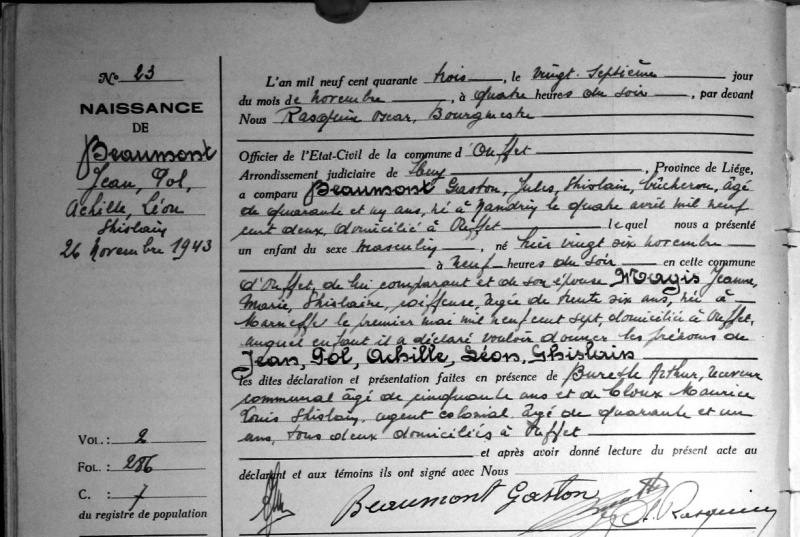 No 23
NAISSANCE
DE
Beaumont
Jean, Pol,
Achille, Léon
Ghislain
26 Novembre 1943
VOL. : 2
FOL. : 286
C. : 7
du registre de population
L'an mil neuf cent quarante trois, le vingt-septième jour
du mois de novembre, à quatre heures du soir, par devant
Nous Rasquin Oscar, Bourgmestre
Officier de l'Etat-Civil de la commune d'Ouffet
Arrondissement judiciaire de Huy, Province de Liége,
a comparu Beaumont Gaston, Jules, Ghislain, bûcheron, âgé
de quarante et un ans, né à Nandrin le quatre avril mil neuf
cent deux, domicilié à Ouffet lequel nous a présenté
un enfant du sexe masculin, né hier vingt six novembre
à neuf heures du soir en cette commune
d'Ouffet, de lui comparant et de son épouse Magis Jeanne,
Marie, Ghislaine, coiffeuse, âgée de trente six ans, née à
Marneffe le premier mai mil neuf cent sept, domiciliée à Ouffet,
auquel enfant il a déclaré vouloir donner les prénoms de
Jean, Pol, Achille, Léon, Ghislain
les dites déclaration et présentation faites en présence de Arthur, receveur
communal âgé de cinquante ans et de Cloux Maurice
Louis Ghislain, agent colonial âgé de quarante et un
ans, tous deux domiciliés à Ouffet
et après avoir donné lecture du présent acte au
déclarant et aux témoins ils ont signé avec Nous
Beaumont Gaston
O. Rasquin